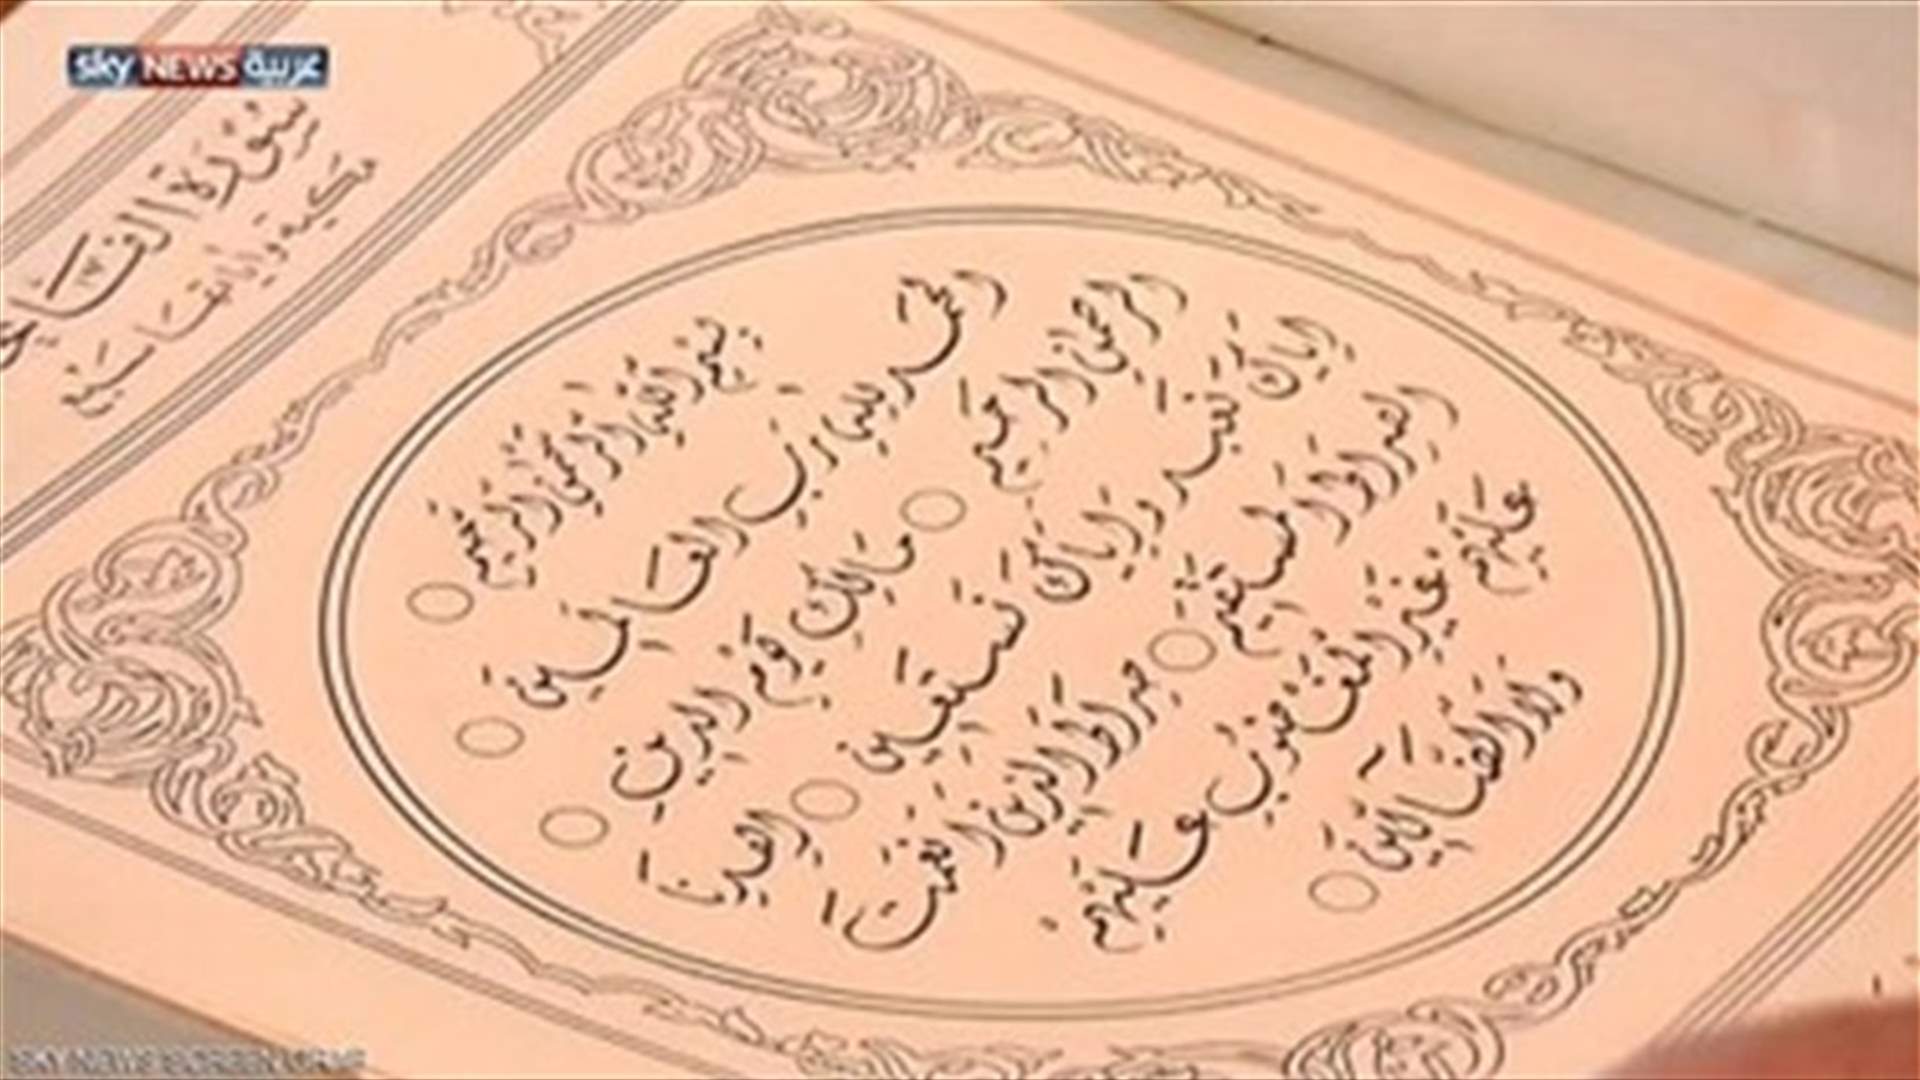 sky NEWS عربية
سُورَة الفَا
مكية وآياتها سبع
بِسْمِ اللَّهِ الرَّحْمٰنِ الرَّحِيمِ
الحَمْدُ لِلَّهِ رَبِّ العَالَمِينَ
الرَّحْمٰنِ الرَّحِيمِ مَالِكِ يَوْمِ الدِّينِ
إِيَّاكَ نَعْبُدُ وَإِيَّاكَ نَسْتَعِينُ اهْدِنَا
الصِّرَاطَ المُسْتَقِيمَ صِرَاطَ الَّذِينَ أَنْعَمْتَ
عَلَيْهِمْ غَيْرِ المَغْضُوبِ عَلَيْهِمْ
وَلَا الضَّالِّينَ
SKY NEWS SCREEN GRAB